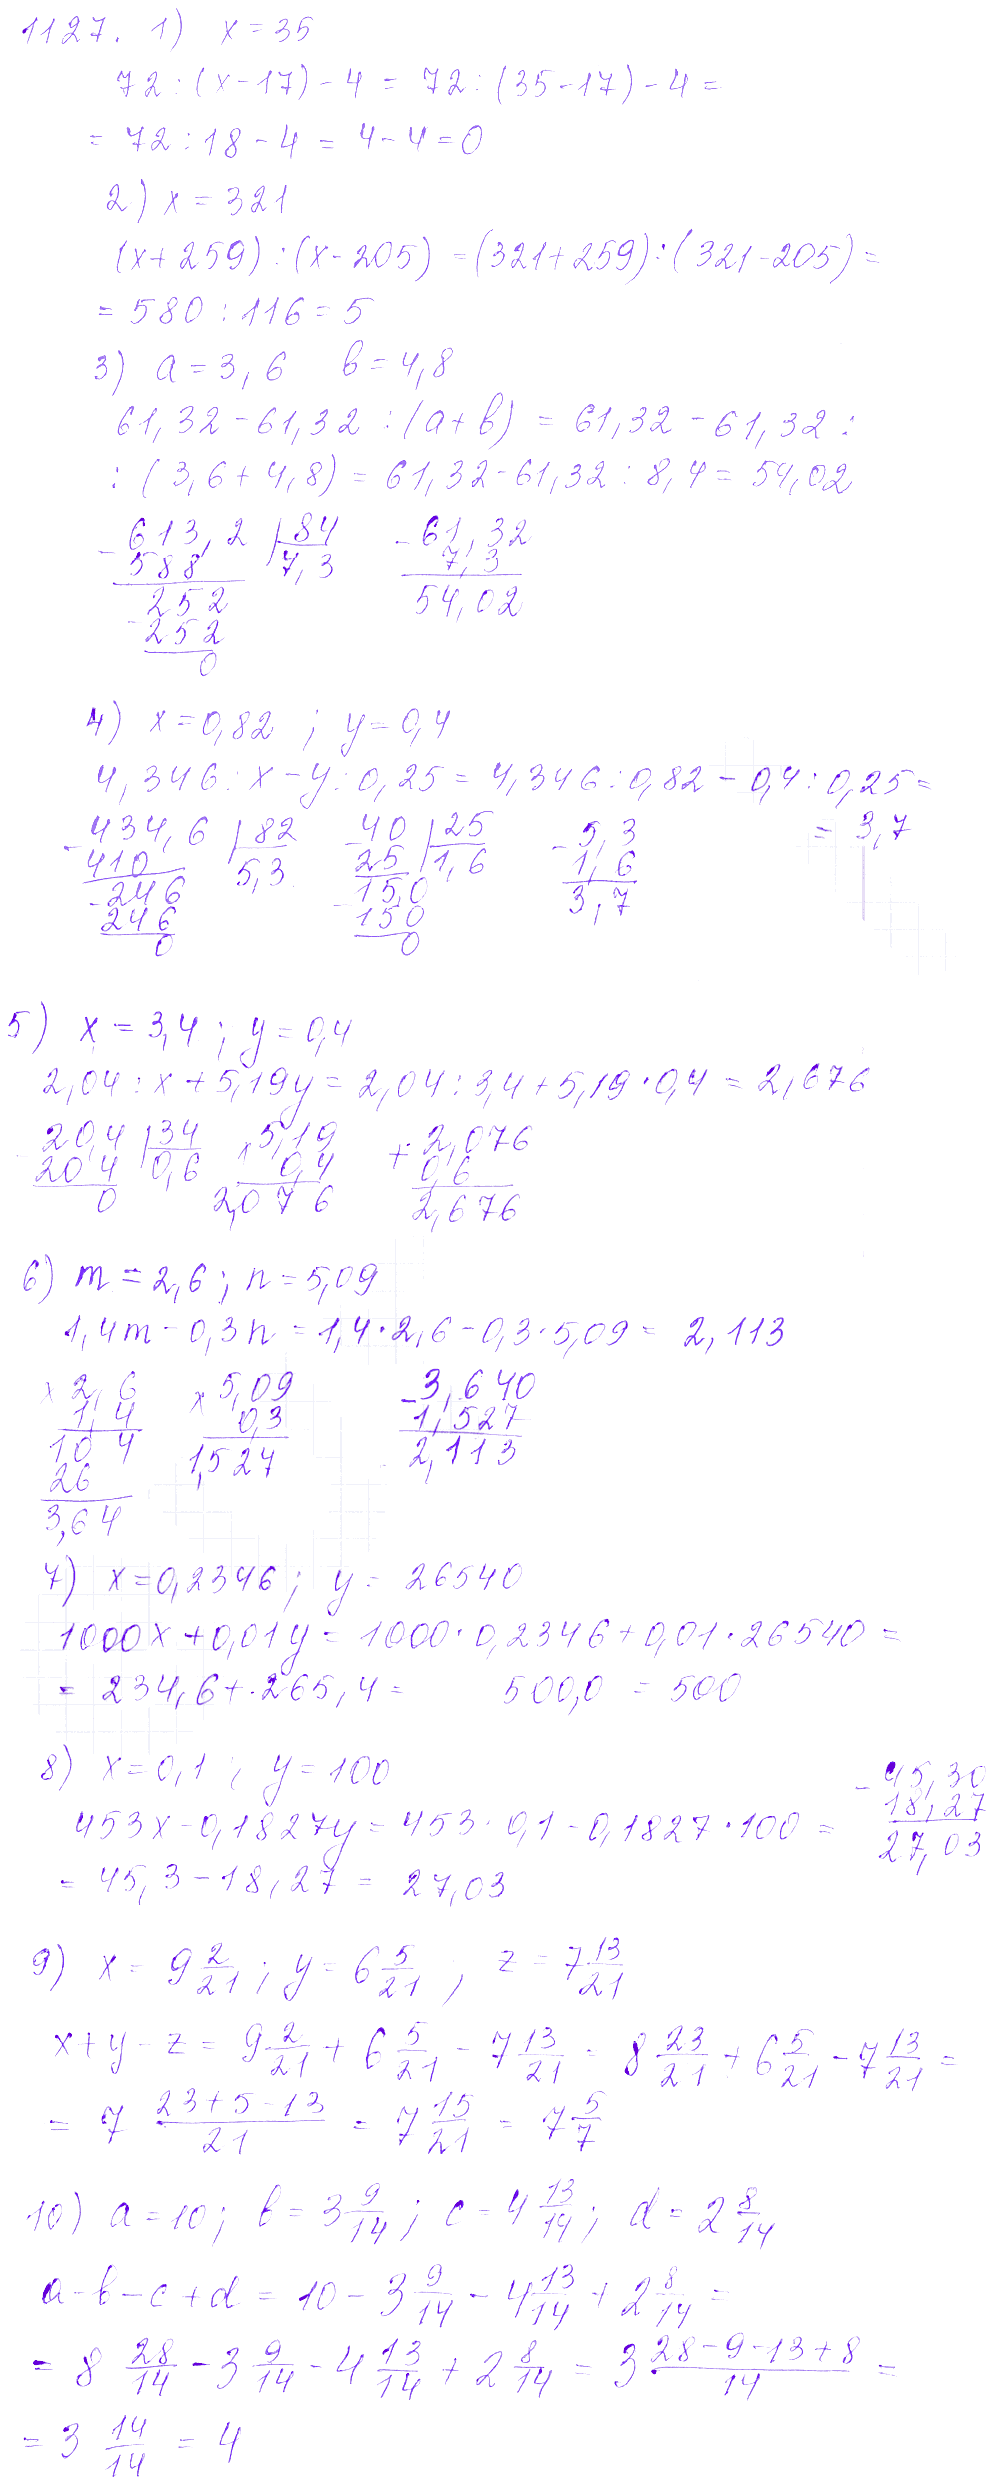 1127. 1) x = 35
72 : (x - 17) - 4 = 72 : (35 - 17) - 4 =
= 72 : 18 - 4 = 4 - 4 = 0
2) x = 321
(x + 259) : (x - 205) = (321 + 259) : (321 - 205) =
= 580 : 116 = 5
3) a = 3,6 b = 4,8
61,32 - 61,32 : (a + b) = 61,32 - 61,32 :
: (3,6 + 4,8) = 61,32 - 61,32 : 8,4 = 54,02
- 613,2 | 84 - 61,32
588 7,3 7,3
252 54,02
- 252
0
4) x = 0,82 ; y = 0,4
4,346 : x - y : 0,25 = 4,346 : 0,82 - 0,4 : 0,25 =
= 3,7
- 434,6 | 82 - 40 | 25 - 5,3
410 5,3 25 1,6 1,6
- 246 15,0 3,7
246 - 150
0 0
5) x = 3,4 ; y = 0,4
2,04 : x + 5,19y = 2,04 : 3,4 + 5,19 · 0,4 = 2,676
- 20,4 | 34 × 5,19 + 2,076
20 4 0,6 0,4 0,6
0 2,076 2,676
6) m = 2,6 ; n = 5,09
1,4m - 0,3n = 1,4 · 2,6 - 0,3 · 5,09 = 2,113
× 2,6 × 5,09 - 3,640
1,4 0,3 1,527
10 4 1,527 2,113
26
3,64
7) x = 0,2346 ; y = 26540
1000x + 0,01y = 1000 · 0,2346 + 0,01 · 26540 =
= 234,6 + 265,4 = 500,0 = 500
8) x = 0,1 ; y = 100
- 45,30
453x - 0,1827y = 453 · 0,1 - 0,1827 · 100 = 18,27
27,03
= 45,3 - 18,27 = 27,03
9) x = 9 2/21 ; y = 6 5/21 ; z = 7 13/21
x + y - z = 9 2/21 + 6 5/21 - 7 13/21 = 8 23/21 + 6 5/21 - 7 13/21 =
= 7 (23 + 5 - 13)/21 = 7 15/21 = 7 5/7
10) a = 10 ; b = 3 9/14 ; c = 4 13/14 ; d = 2 8/14
a - b - c + d = 10 - 3 9/14 - 4 13/14 + 2 8/14 =
= 8 28/14 - 3 9/14 - 4 13/14 + 2 8/14 = 3 (28 - 9 - 13 + 8)/14 =
= 3 14/14 = 4